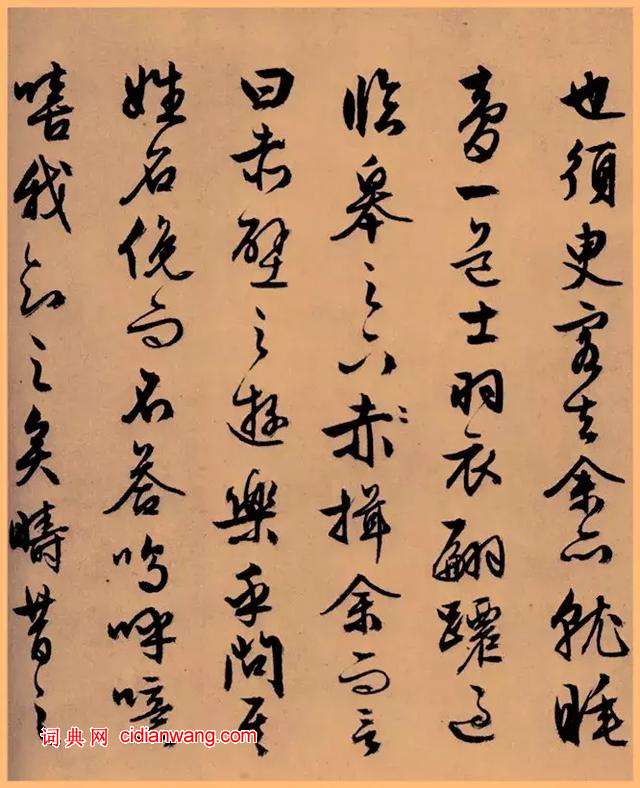 也須臾客去余亦就睡
夢一道士羽衣翩躚過
臨皋之下赤揖余而言
曰赤壁之遊樂乎問其
姓名俛而不答嗚呼噫
嘻我知之矣疇昔之
词典网 cidianwang.com